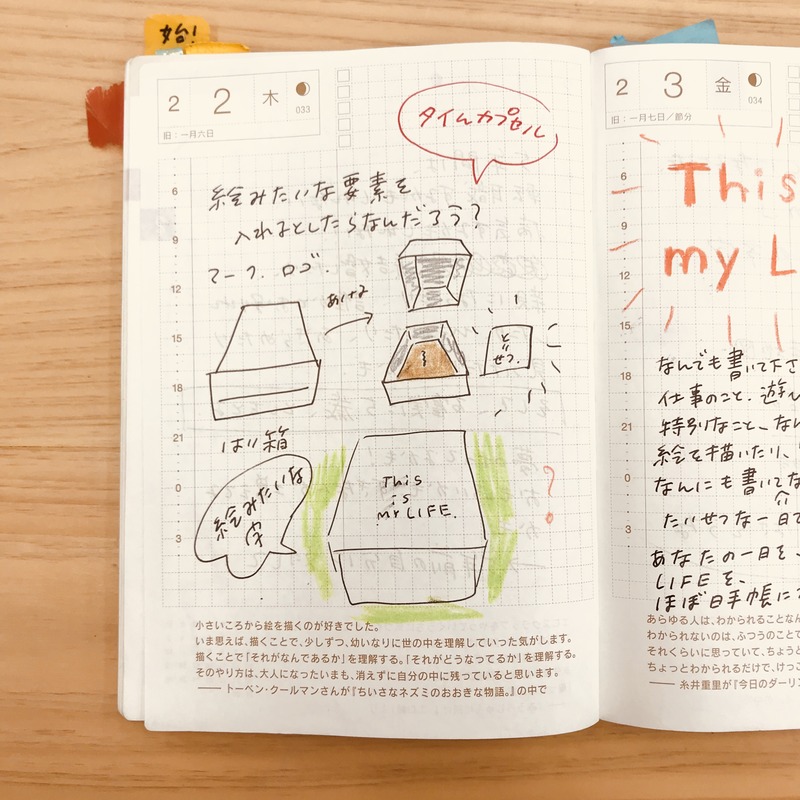 始!
2
2
木
033
旧：一月六日
タイムカプセル
絵みたいな要素を
入れるとしたらなんだろう?
マーク. ロゴ.
あける
とじせつ.
はり箱
絵みたいな
字
This
is
my LIFE.
?
6
9
12
15
18
21
0
3
小さいころから絵を描くのが好きでした。
いま思えば、描くことで、少しずつ、幼いなりに世の中を理解していった気がします。
描くことで「それがなんであるか」を理解する。「それがどうなってるか」を理解する。
そのやり方は、大人になったいまも、消えずに自分の中に残っていると思います。
—— トーベン・クールマンさんが『ちいさなネズミのおおきな物語。』の中で
2
3
金
034
旧：一月七日／節分
This
my L
6
9
12
15
18
21
0
3
なんでも書いて下さ
仕事のこと、遊び
特別なこと、なん
絵を描いたり、
なんにも書いてな
介
たいせつな一日で
あなたの一日を、
LIFEを、
ほぼ日手帳に
あらゆる人は、わかられることなん
わかられないのは、ふつうのことで
それくらいに思っていて、ちょうど
ちょっとわかられるだけで、けっこ
—— 糸井重里が『今日のダーリン